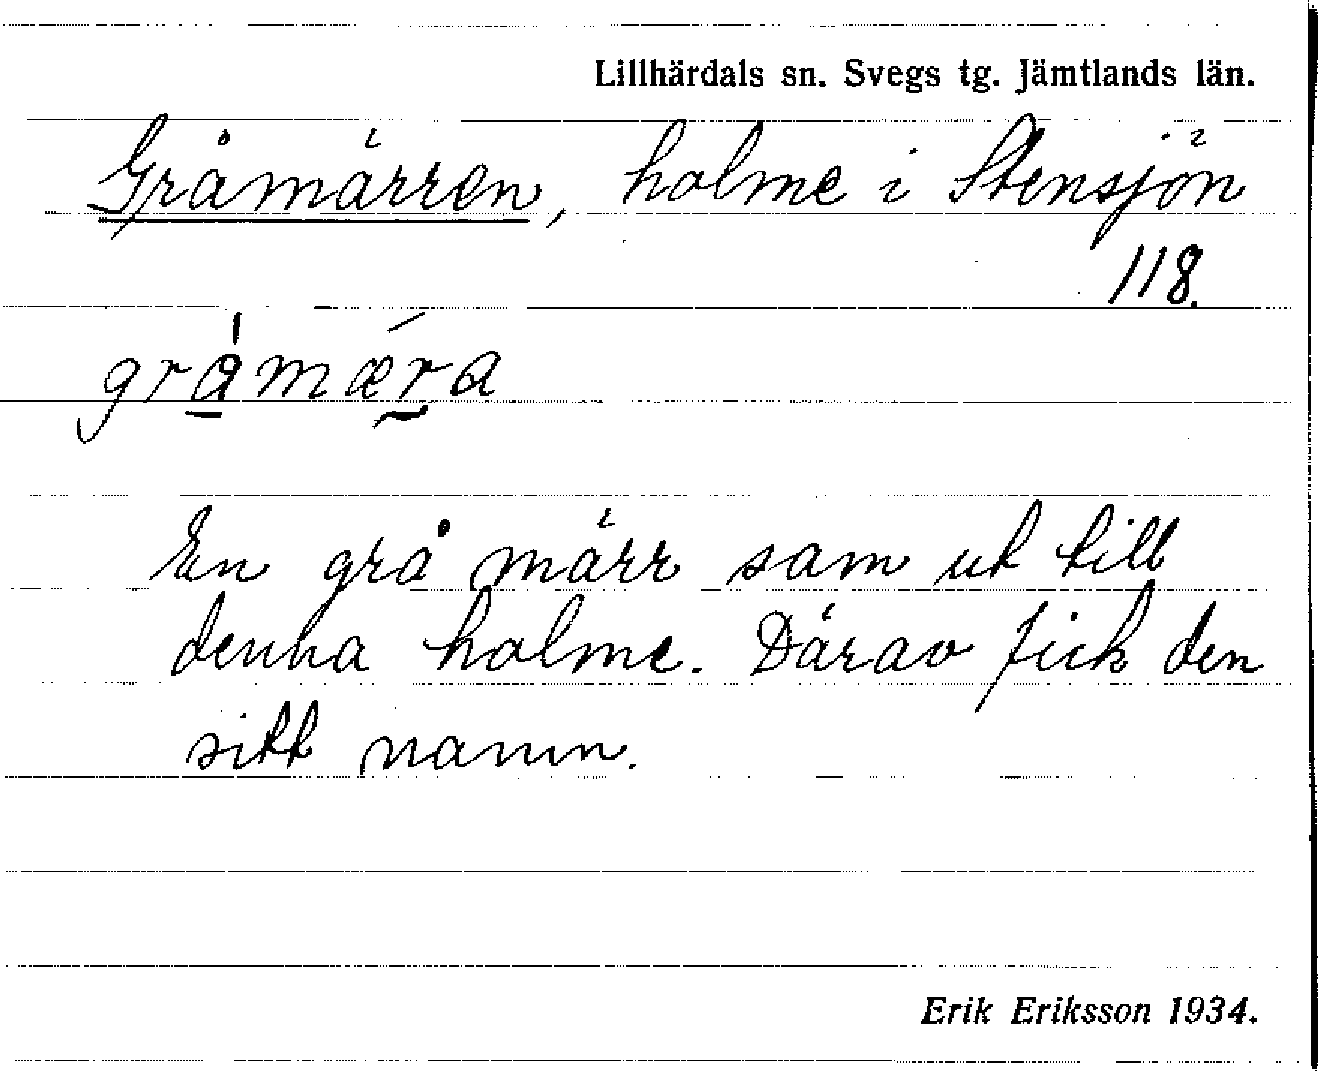 Lillhärdals sn. Svegs tg. Jämtlands län.
Gråmärren, holme i Stensjön
118.
gråmæra
En grå märr sam ut till
denna holme. Därav fick den
sitt namn.
Erik Eriksson 1934.